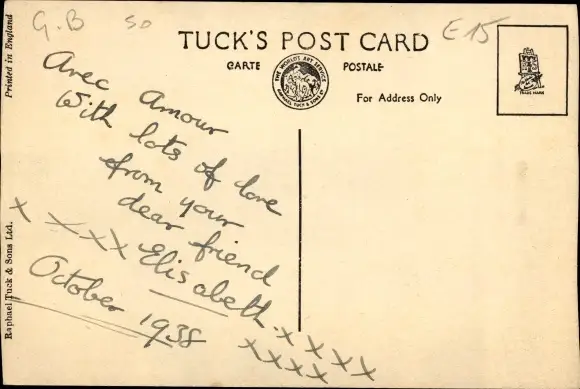 G.B
50
E15
TUCK'S POST CARD
CARTE POSTALE
THE WORLD'S ART SERVICE
RAPHAEL TUCK & SONS LTD
For Address Only
TRADE MARK
Printed in England
Raphael Tuck & Sons Ltd.
Avec Amour
With lots of love
from your
dear friend
x x x x Elisabeth. x x x x
x x x x
October 1938